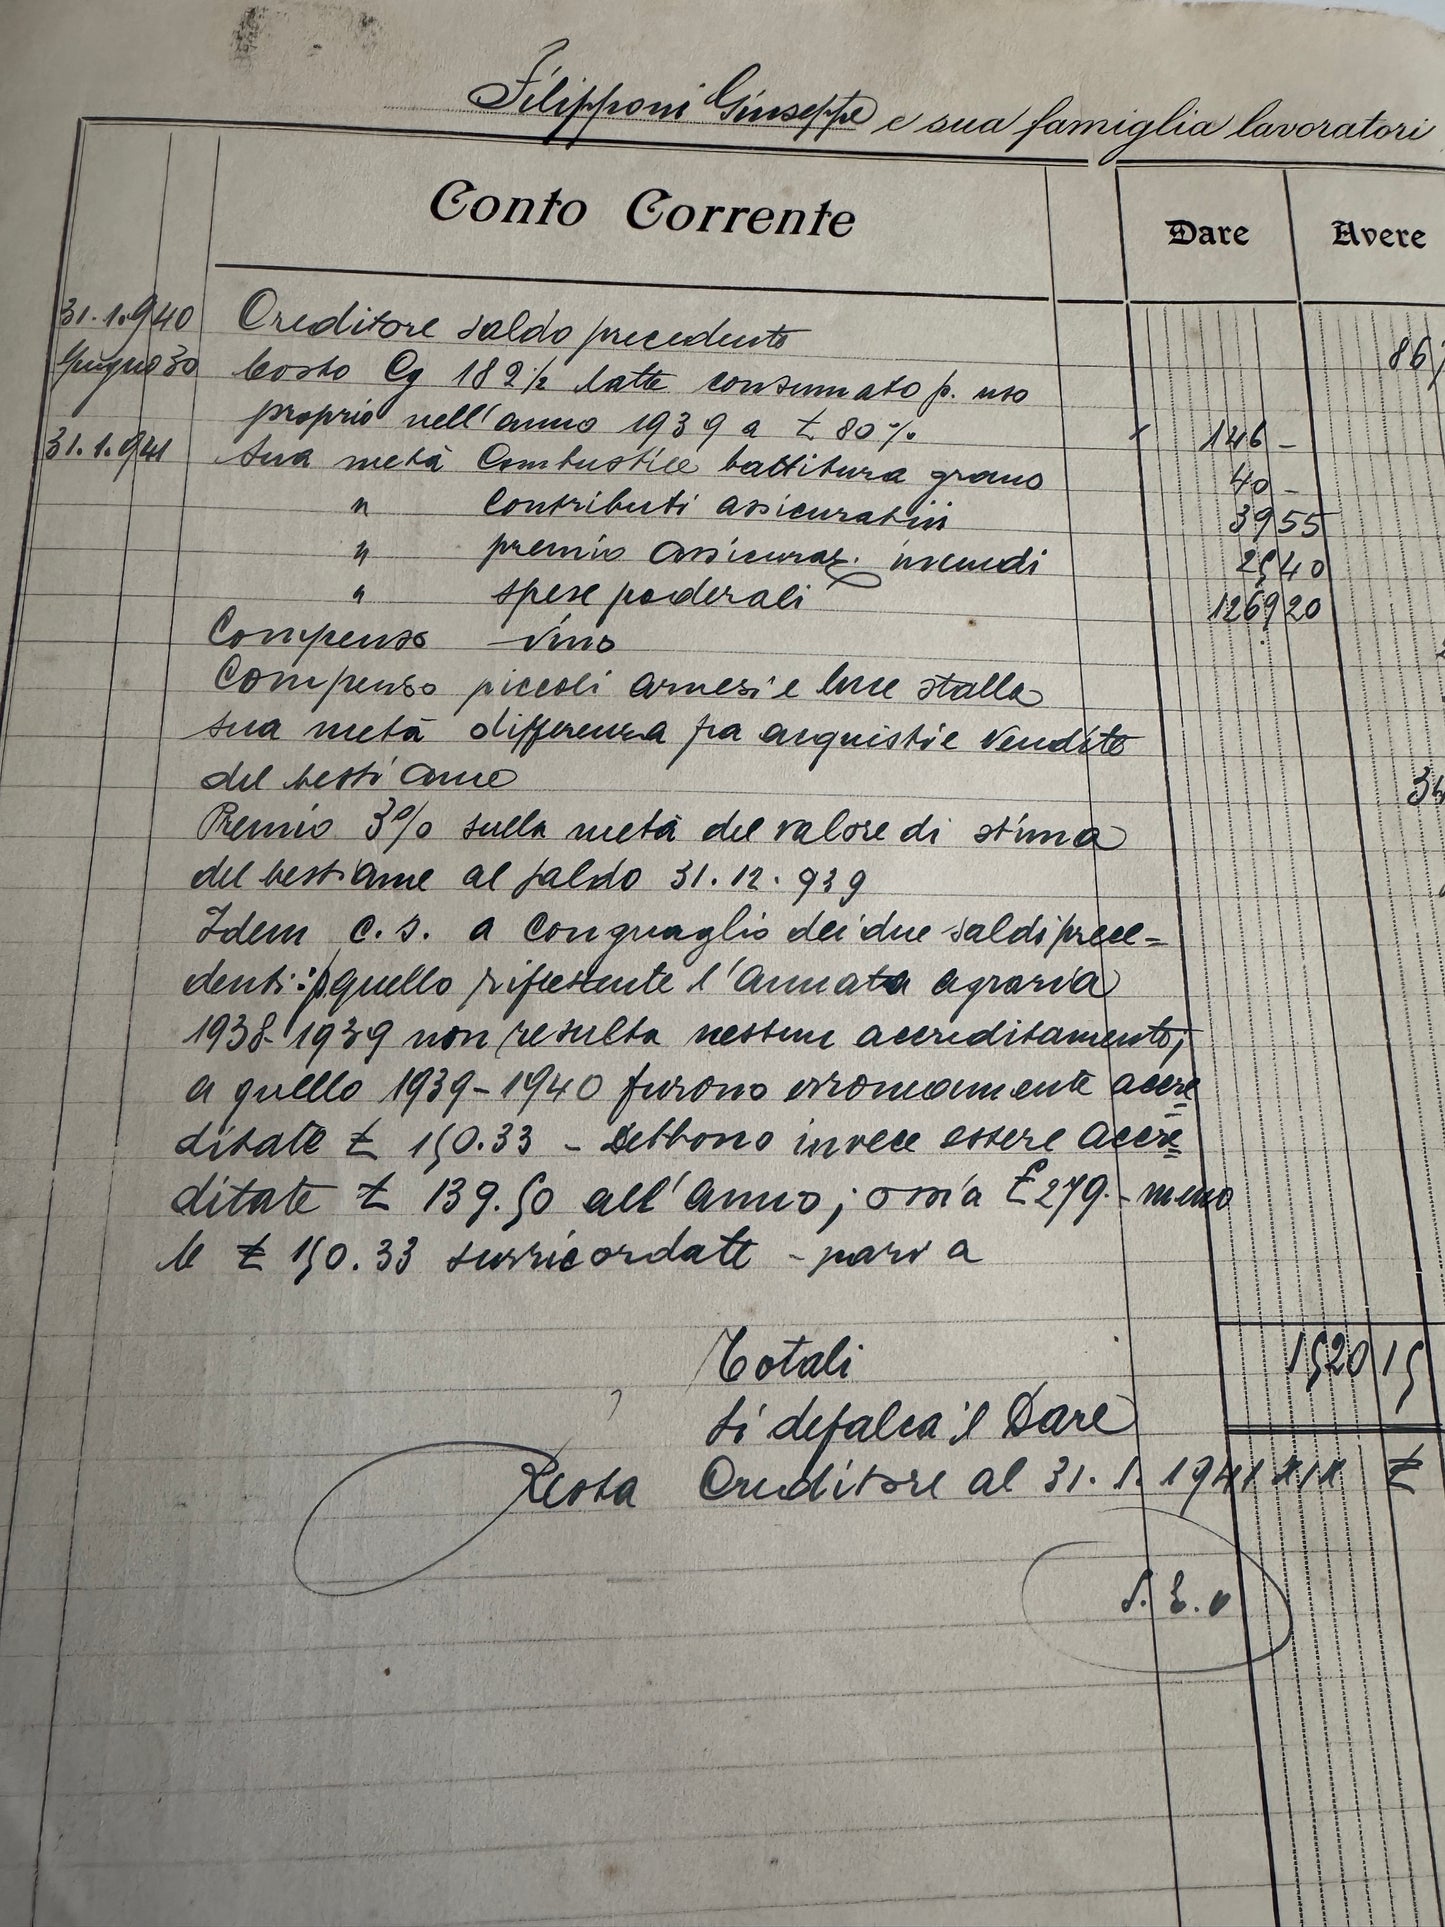 Filipponi Giuseppe e sua famiglia lavoratori
Conto Corrente Dare Avere
31.1.940 Creditore saldo precedente 867
Giugno 30 Costo Cg 182½ latte consumato p. uso
proprio nell'anno 1939 a £ 80% 146 -
31.1.941 Sua metà Combustibile battitura grano 40 -
" Contributi assicurativi 39 55
" premio assicuraz. incendi 25 40
" spese poderali 1269 20
Compenso vino
Compenso piccoli arnesi e luce stalla
sua metà differenza fra acquisti e vendite
del bestiame 34
Premio 3% sulla metà del valore di stima
del bestiame al saldo 31.12.939
Idem c.s. a conguaglio dei due saldi prece=
denti: quello riflettente l'annata agraria
1938-1939 non resulta nessun accreditamento;
a quello 1939-1940 furono erroneamente accre
ditate £ 150.33 - Debbono invece essere accre
ditate £ 139.50 all'anno; ossia £ 279.- meno
le £ 150.33 surricordate - pari a
Totali 1520 15
Si defalca il Dare
Resta Creditore al 31.1.1941 XIX £
S.E.o